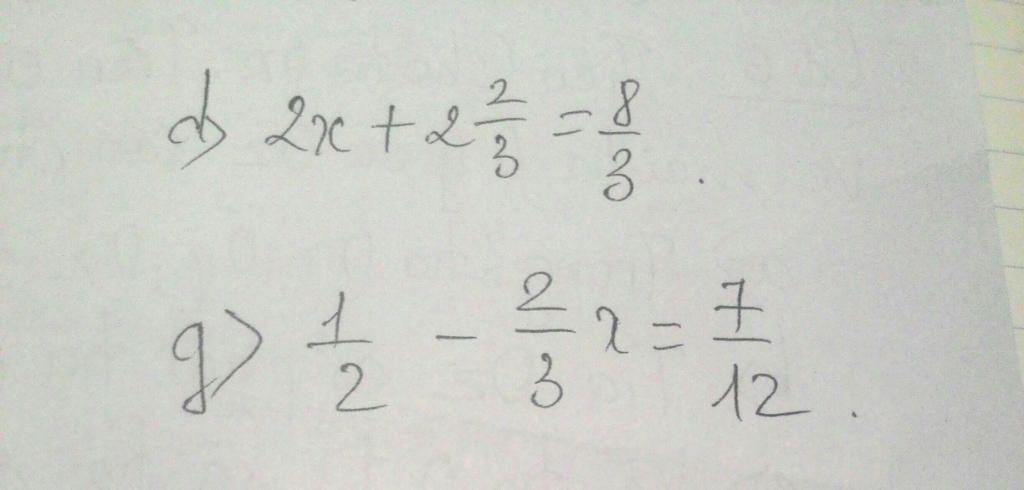 d) 2x + 2 2/3 = 8/3 .
g) 1/2 - 2/3 x = 7/12 .